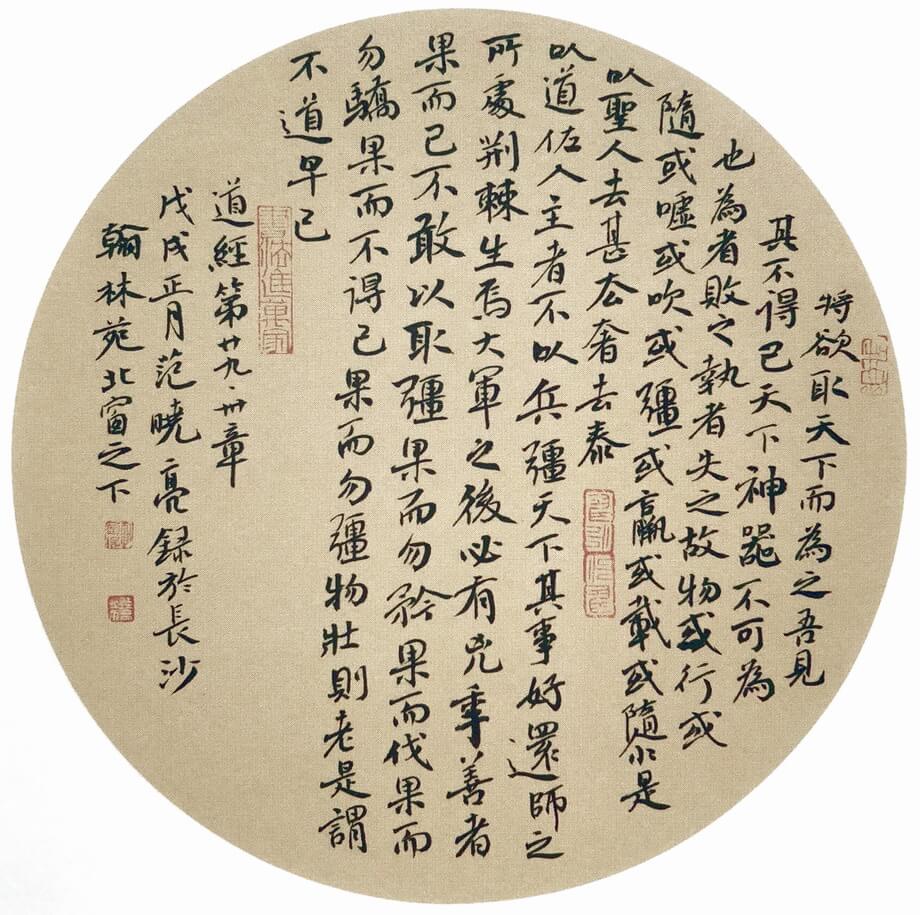 将欲取天下而為之吾見
其不得已天下神器不可為
也為者敗之執者失之故物或行或
隨或噓或吹或彊或羸或載或隳是
以聖人去甚去奢去泰
以道佐人主者不以兵彊天下其事好還師之
所處荆棘生焉大軍之後必有凶年善者
果而已不敢以取彊果而勿矜果而伐果而
勿驕果而不得已果而勿彊物壯則老是謂
不道早已
書法進萬家
道經第廿九·卅章
戊戌正月范曉亮録於長沙
翰林苑北窗之下